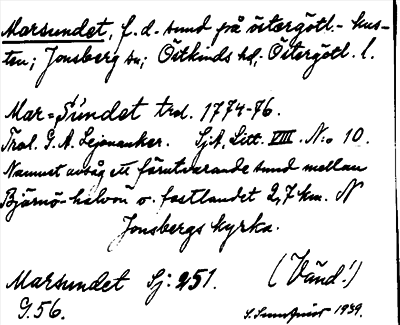 Marsundet, f.d. sund på östergötl.-kus-
ten; Jonsberg sn; Östkinds hd; Östergötl. l.
Mar-Sundet trol. 1774-76.
Trol. G. A. Lejonanker. SjA. Litt. VIII. No 10.
Namnet avsåg ett förutvarande sund mellan
Björnö-halvön o. fastlandet 2,7 km. N
Jonsbergs kyrka.
Marsundet Sj: 251. (Vänd!)
G. 56. 1939.